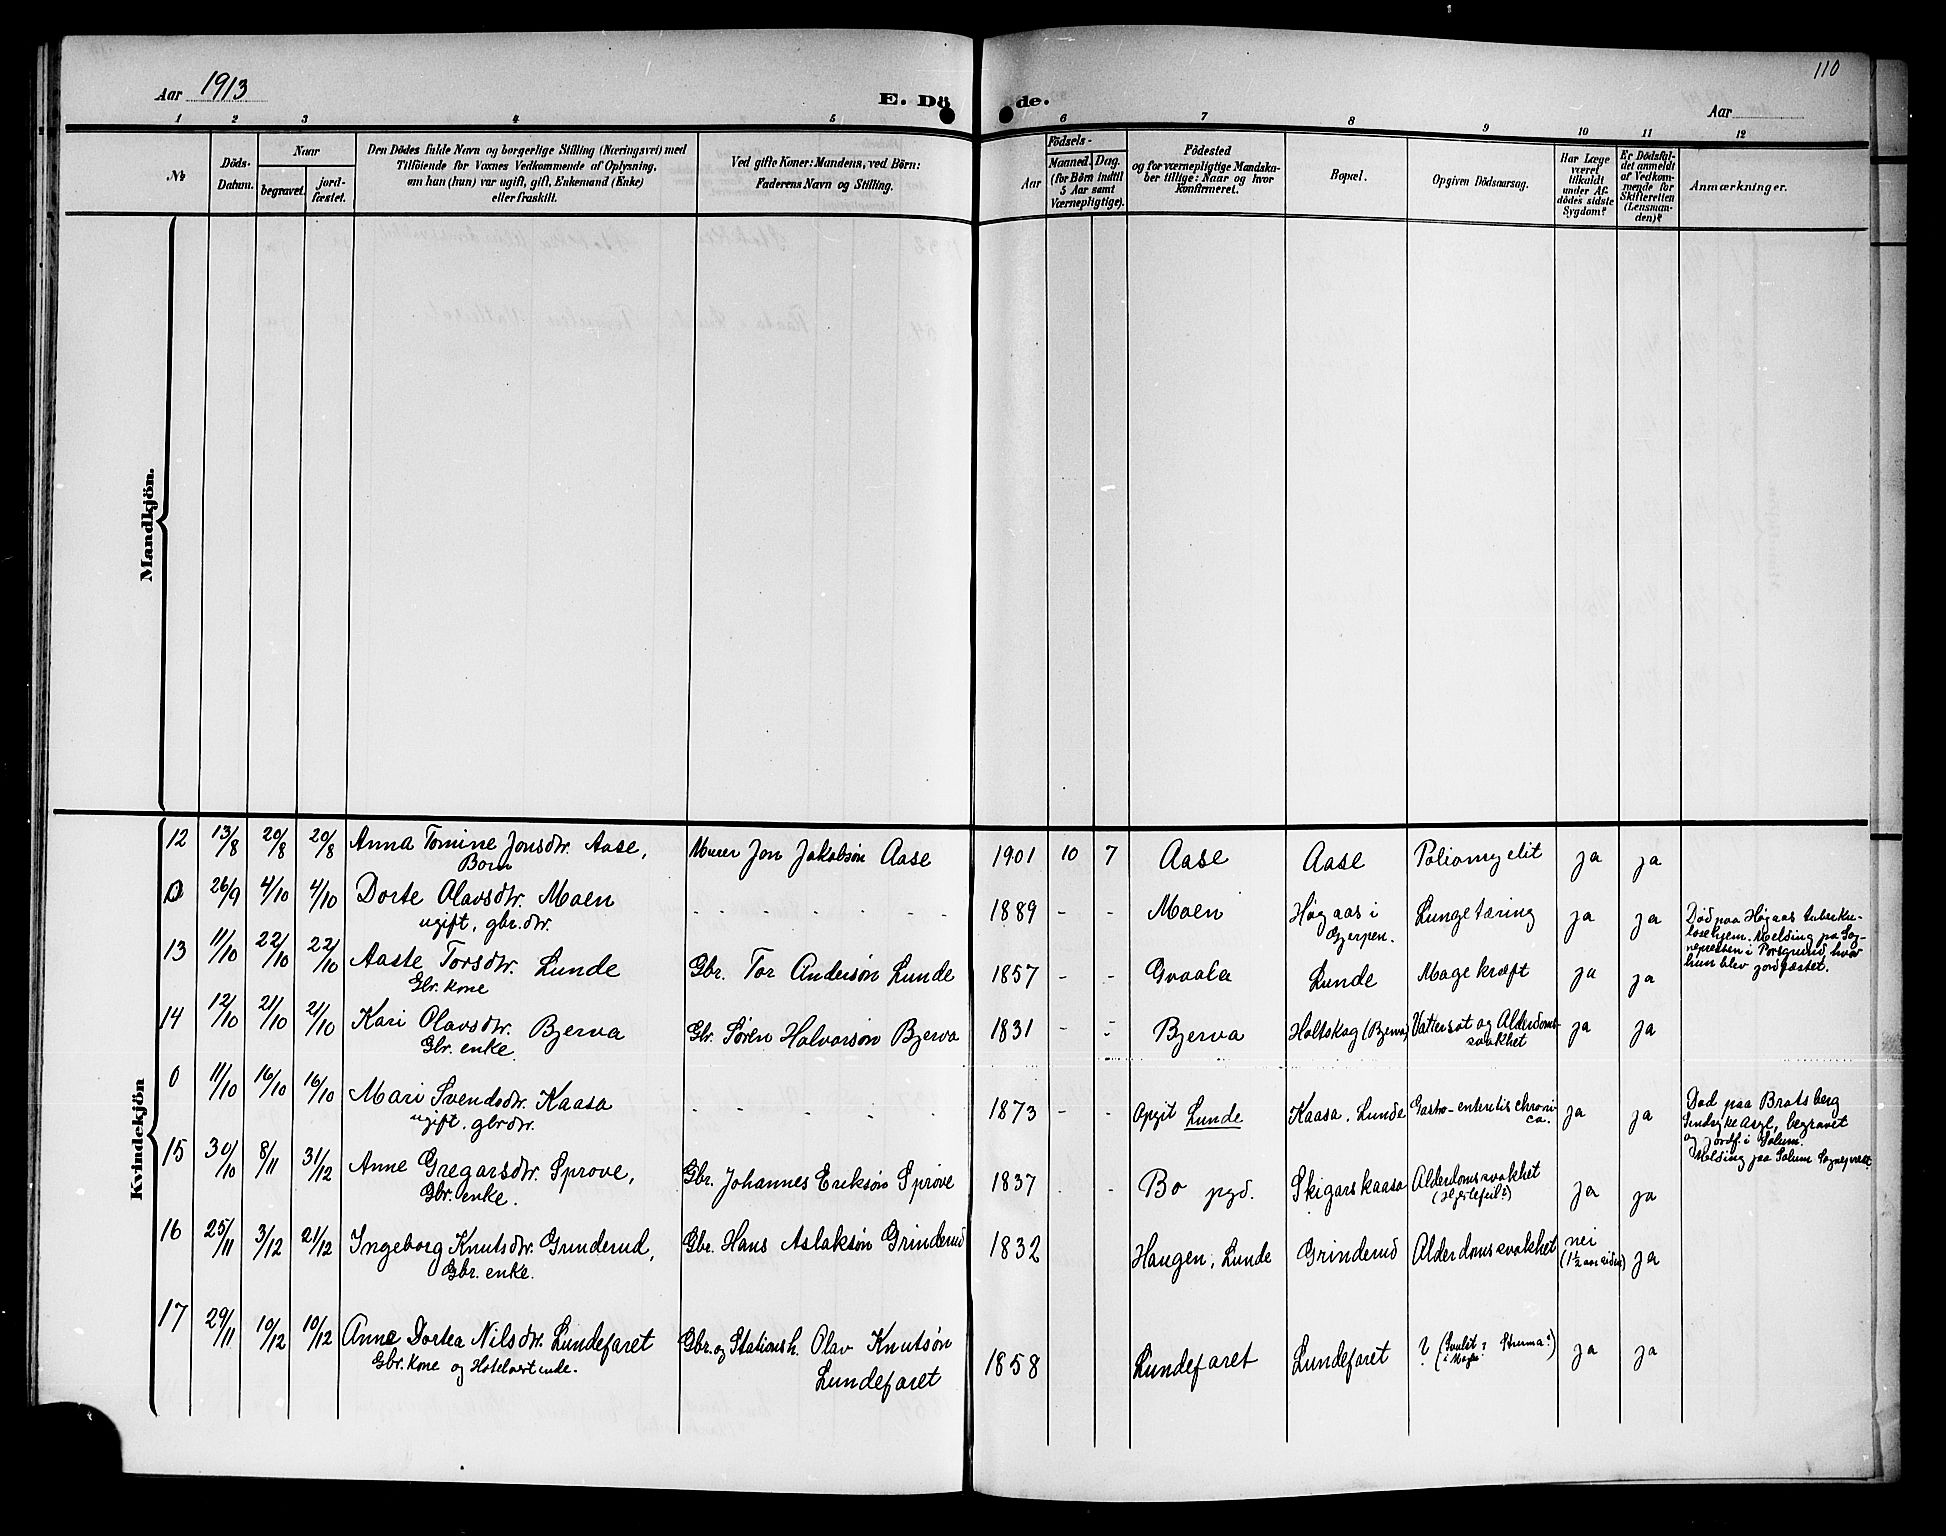 110
Aar 1913
E. Dö de.
Aar
1 2 3 4 5 6 7 8 9 10 11 12
№
Döds-
Datum.
Naar
begravet.
jord-
fæstet.
Den Dödes fulde Navn og borgerlige Stilling (Næringsvei) med
Tilföiende for Voxnes Vedkommende af Oplysning,
om han (hun) var ugift, gift, Enkemand (Enke)
eller fraskilt.
Ved gifte Koner: Mandens, ved Börn:
Faderens Navn og Stilling.
Födsels-
Aar
Maaned.
Dag.
(for Börn indtil
5 Aar samt
Værnepligtige).
Födested
og for værnepligtige Mandska-
ber tillige: Naar og hvor
konfirmeret.
Bopæl.
Opgiven Dödsaarsag.
Har Læge
været
tilkaldt
under Af-
dödes sidste
Sygdom?
Er Dödsfal-
det anmeldt
af Vedkom-
mende for
Skifteretten
(Lensman-
den)?
Anmærkninger.
Mandkjön.
Kvindekjön
12 13/8 20/8 20/8 Anna Tomine Jonsdtr. Aase, Murer Jon Jakobsøn Aase 1901 10 7 Aase Aase Poliomyelit ja ja
Barn
0 26/9 4/10 4/10 Dorte Olavsdtr. Moen - - - - - - - 1889 - - Moen Høgaas i Lungetæring ja ja
ugift, gbr.dtr. Gjerpen.
Død paa Høgaas tuberku-
losehjem. Melding pa Sog-
nepresten i Porsgrund, hvor
hun blev jordfæstet.
13 11/10 22/10 22/10 Aaste Torsdtr. Lunde Gbr. Tor Andersøn Lunde 1857 - - Gvaala Lunde Mage kræft ja ja
Gbr. kone
14 12/10 21/10 21/10 Kari Olavsdtr. Bjerva Gbr. Søren Halvorsøn Bjerva 1831 - - Bjerva Holtskog (Bjerva) Vattersot og Alderdoms-
Gbr. enke. svakhet ja ja
0 11/10 16/10 16/10 Mari Svendsdtr. Kaasa - - - - - - - 1873 - - Opgit Lunde Kaasa. Lunde Gastro-enteretis chroni
ugift. gbrdtr. ca. ja ja
Død paa Bratsberg
Sindsyke Asyl, begravet
og jordf. i Solum.
Melding paa Solum Sognepræst.
15 30/10 8/11 31/12 Anne Gregarsdtr. Sprove, Gbr. Johannes Eriksøn Sprove 1837 - - Bo pgd. Skigarskaasa Alderdomssvakhet
Gbr. enke. (Hjertefeil?) ja ja
16 25/11 3/12 21/12 Ingeborg Knutsdtr. Grinderud, Gbr. Hans Aslaksøn Grinderud 1832 Haugen, Lunde Grinderud Alderdomssvakhet nei
Gbr. enke. (1½ aar siden) ja
17 29/11 10/12 10/12 Anne Dortea Nilsdtr. Lundefaret Gbr. og Stationsh. Olav Knutsøn
Gbr. kone og Hotelvertinde. Lundefaret
1858 Lundefaret Lundefaret ? (Svulst i Struma?) ja ja